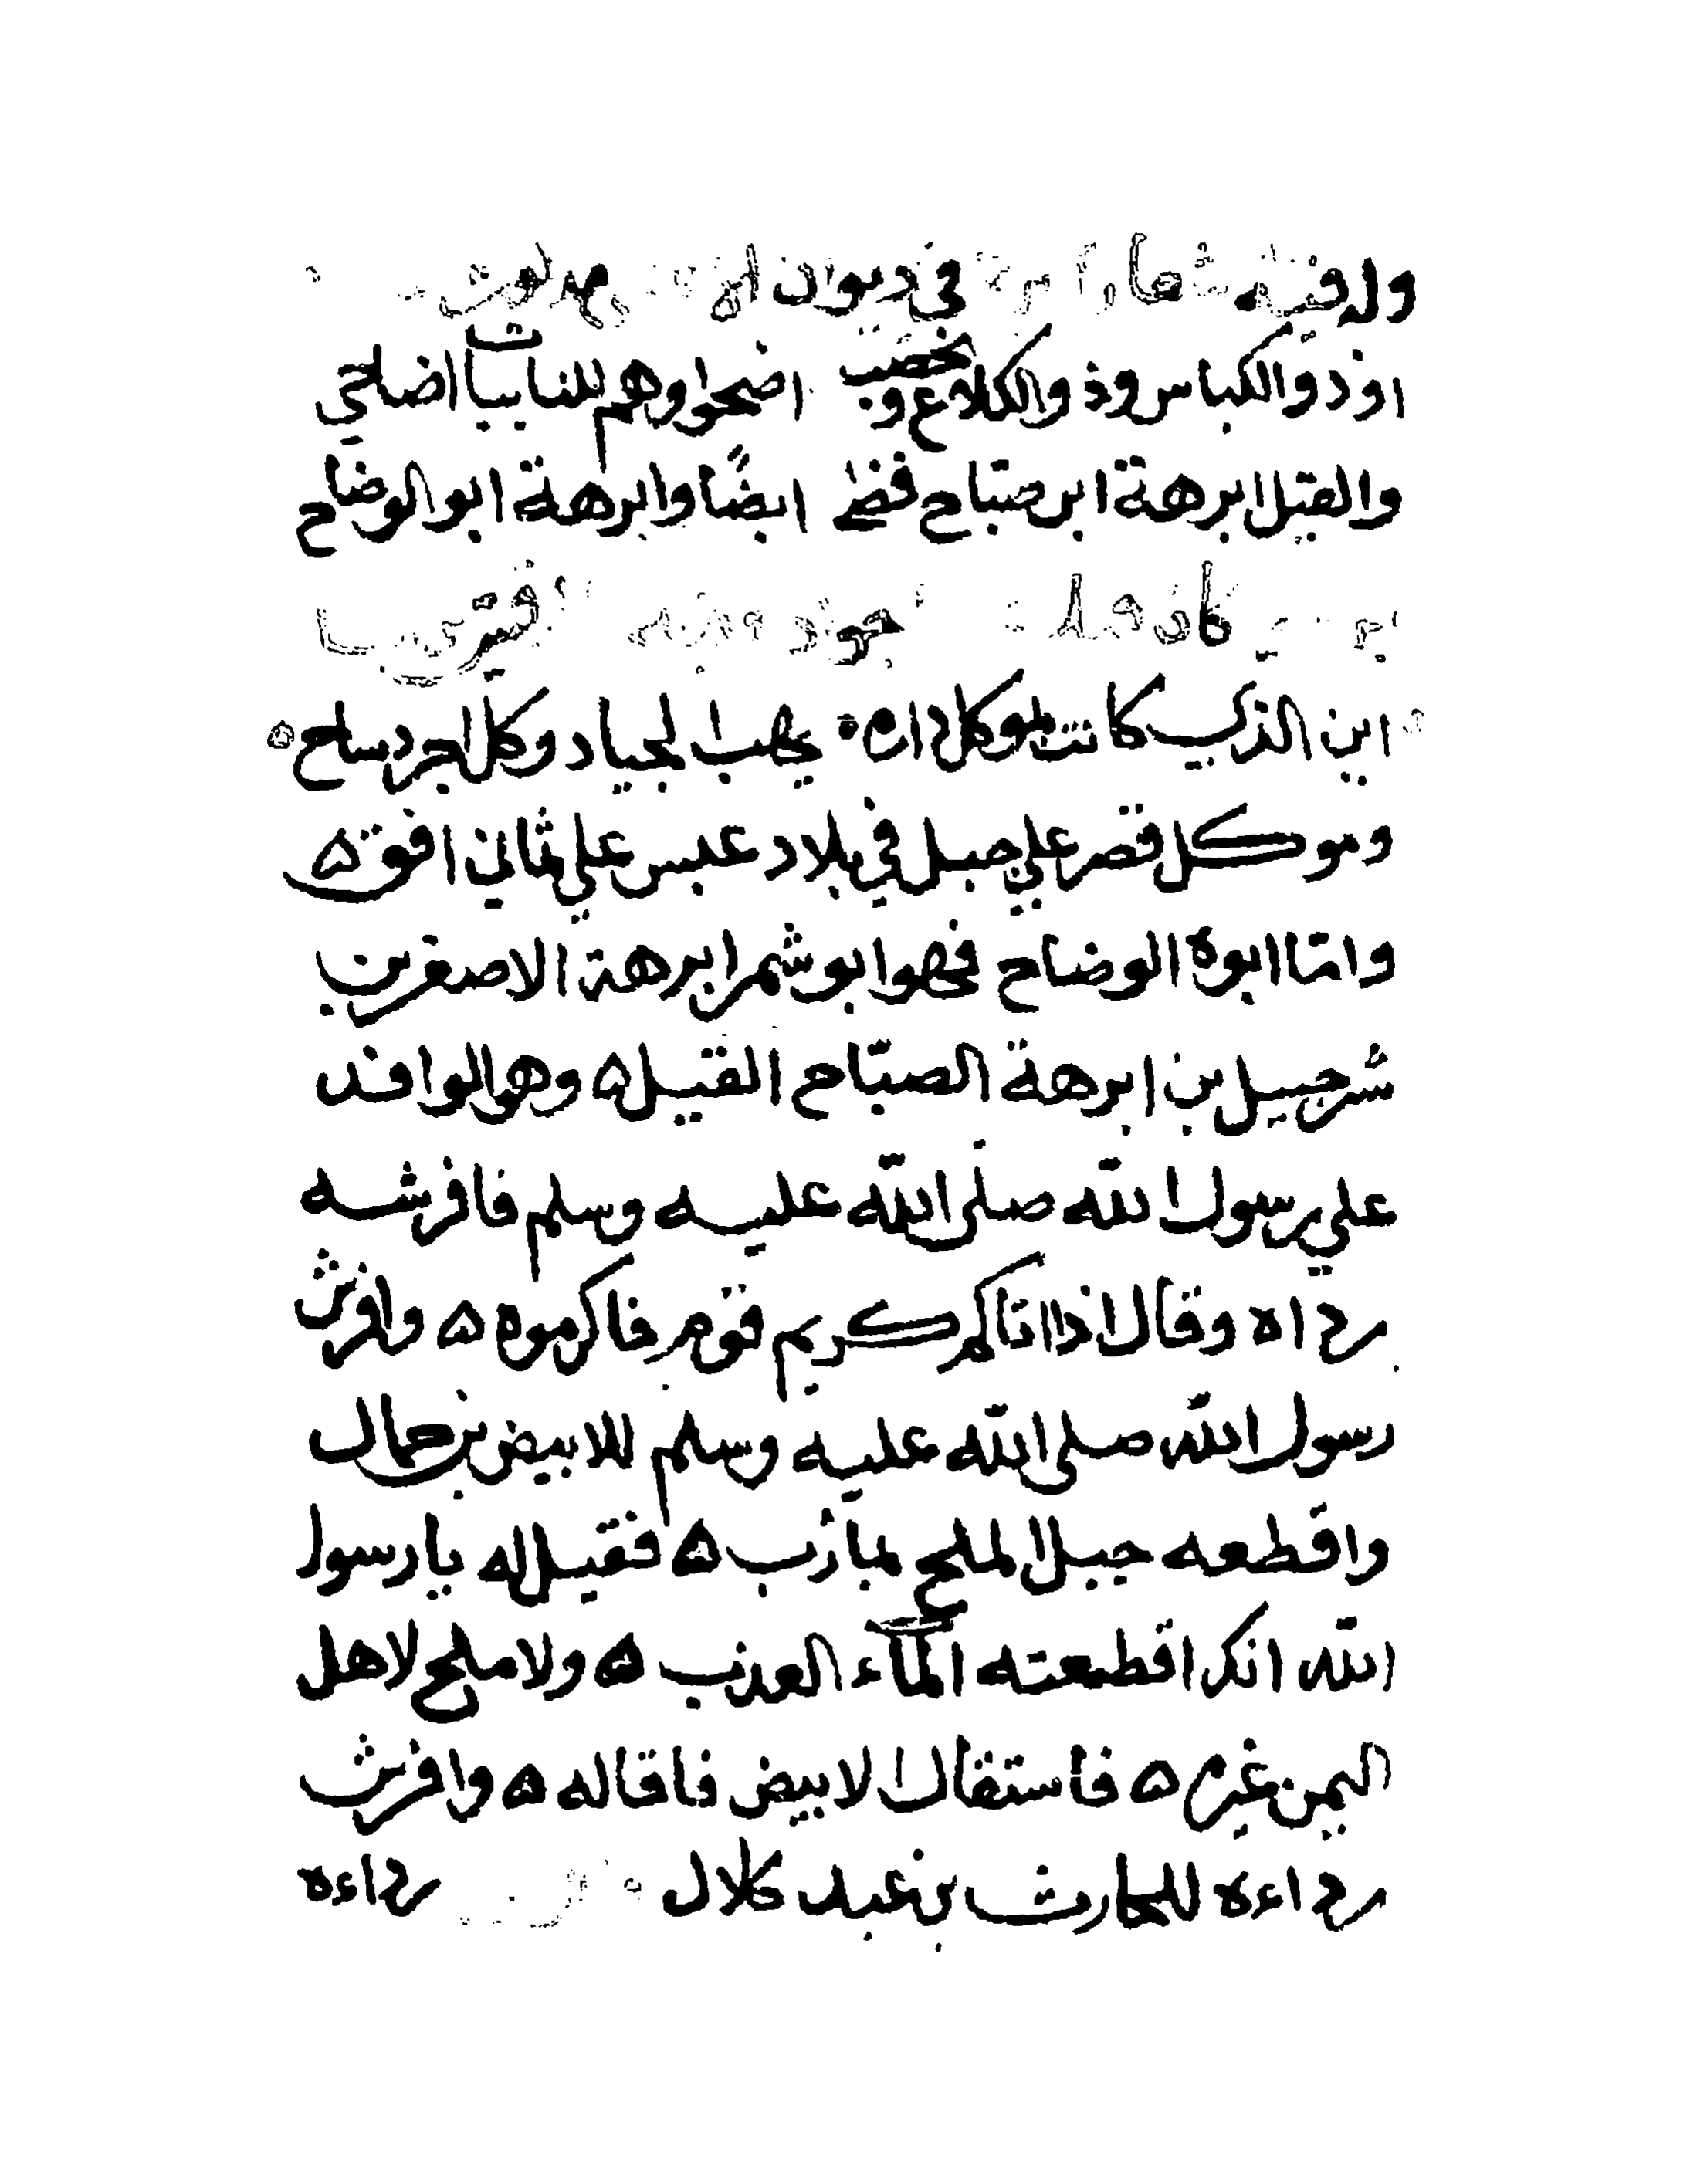 وله فيه في ديوان
اوذ ذو الكباس وذو الكلاع ويحصب اضحوا وهم للنايبات اضاحي
والقيل ابرهة ابن صباح قضى ايضًا وابرهة ابو الوضاح
كان
اين الذي كانت بموكل داره يهب الجياد وكل اجرد سابح
وموكل قصر على جبل في بلاد عبس على ثاني افق ۵
وامّا ابوه الوضاح فهو ابو شمر ابرهة الاصغر بن
شرحبيل بن ابرهة الصبّاح القيل ۵ وهو الوافد
علي رسول الله صلى الله عليه وسلم فافرشه
رداه وقال اذا اتاكم كريم قوم فاكرموه ۵ وافرش
رسول الله صلى الله عليه وسلم للابيض بن حمال
واقطعه جبل الملح بمأرب ۵ فقيل له يا رسول
الله انك اقطعته المآء العذب ۵ ولا ملح لاهل
اليمن غيره ۵ فاستقال الابيض فاقاله ۵ وافرش
رداءه للحارث بن عبد كلال رداءه